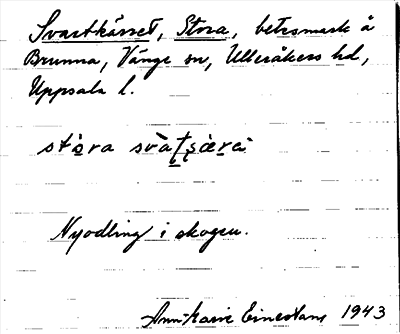 Svartkärret, Stora, betesmark å
Brunna, Vänge sn, Ulleråkers hd,
Uppsala l.
stòra
Nyodling i skogen.
Ann-Marie 1943